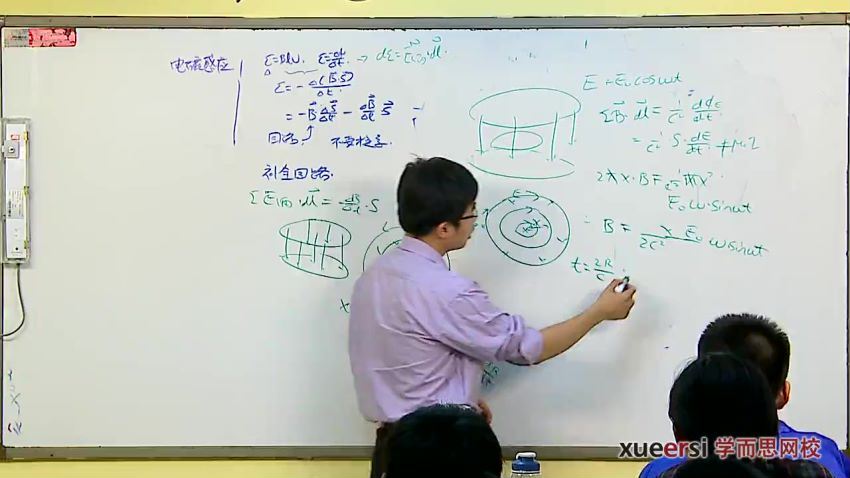 电磁感应
ε=Blv. ε=-dφ/dt → dε=E(r)·dl.
ε=-Δ(B·S)/Δt.
=-B·ΔS/Δt - ΔB/Δt·S
回路? 不要框字.
补全回路.
ΣE(r)·dl=-dB/dt·S
E=E₀cosωt
ΣB·dl=1/c² dφE/dt.
=1/c² S·dE/dt
2πx·B=1/c² πx²
E₀ω·sinωt
∴ B= x E₀/2c² ω sinωt
t=2R/c
xueersi 学而思网校